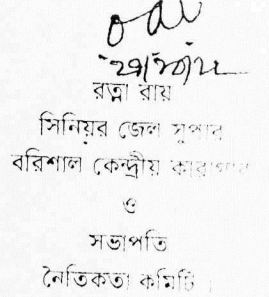 রত্না রায়
সিনিয়র জেল সুপার
বরিশাল কেন্দ্রীয় কারাগার
ও
সভাপতি
নৈতিকতা কমিটি।